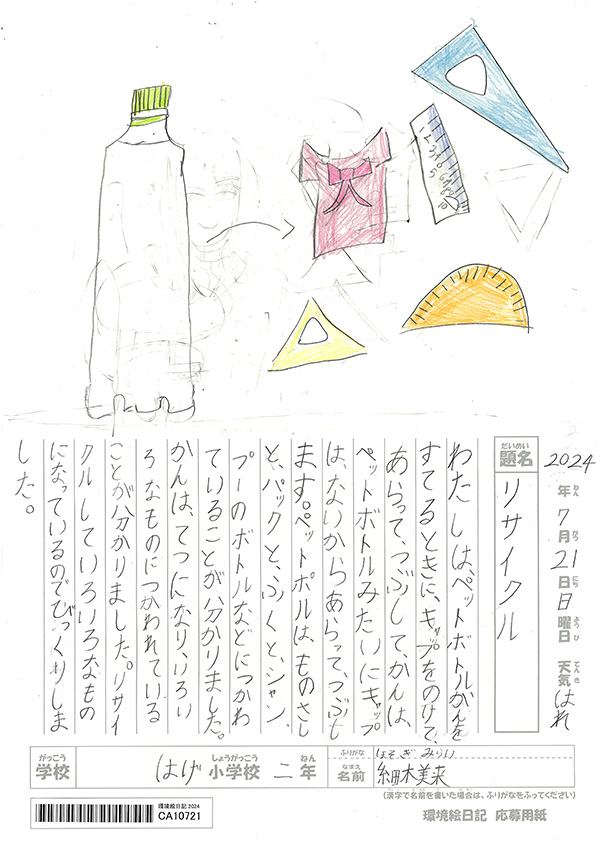 2024年7月21日日曜日 天気 はれ
ねん がつ にち ようび てんき
だいめい
題名 リサイクル
わたしはペットボトルかんを
すてるときに、キャップをのけて、
あらって、つぶして、かんは、
ペットボトルみたいにキャップ
は、ないからあらって、つぶし
ます。ペットボルは、ものさし
と、パックと、ふくと、シャン
プーのボトルなどにつかわ
ていることが分かりました。
かんは、てつになり、いろい
ろなものにつかわれている
ことが分かりました。リサイ
クルしていろいろなもの
になっているのでびっくりしま
した。
がっこう しょうがっこう ねん
学校 はげ小学校 二年
ふりがな ほそぎ みらい
なまえ
名前 細木美来
(漢字で名前を書いた場合は、ふりがなをふってください)
環境絵日記 2024
CA10721
環境絵日記 応募用紙
1 2 3 4 5 6 7 8 9 10